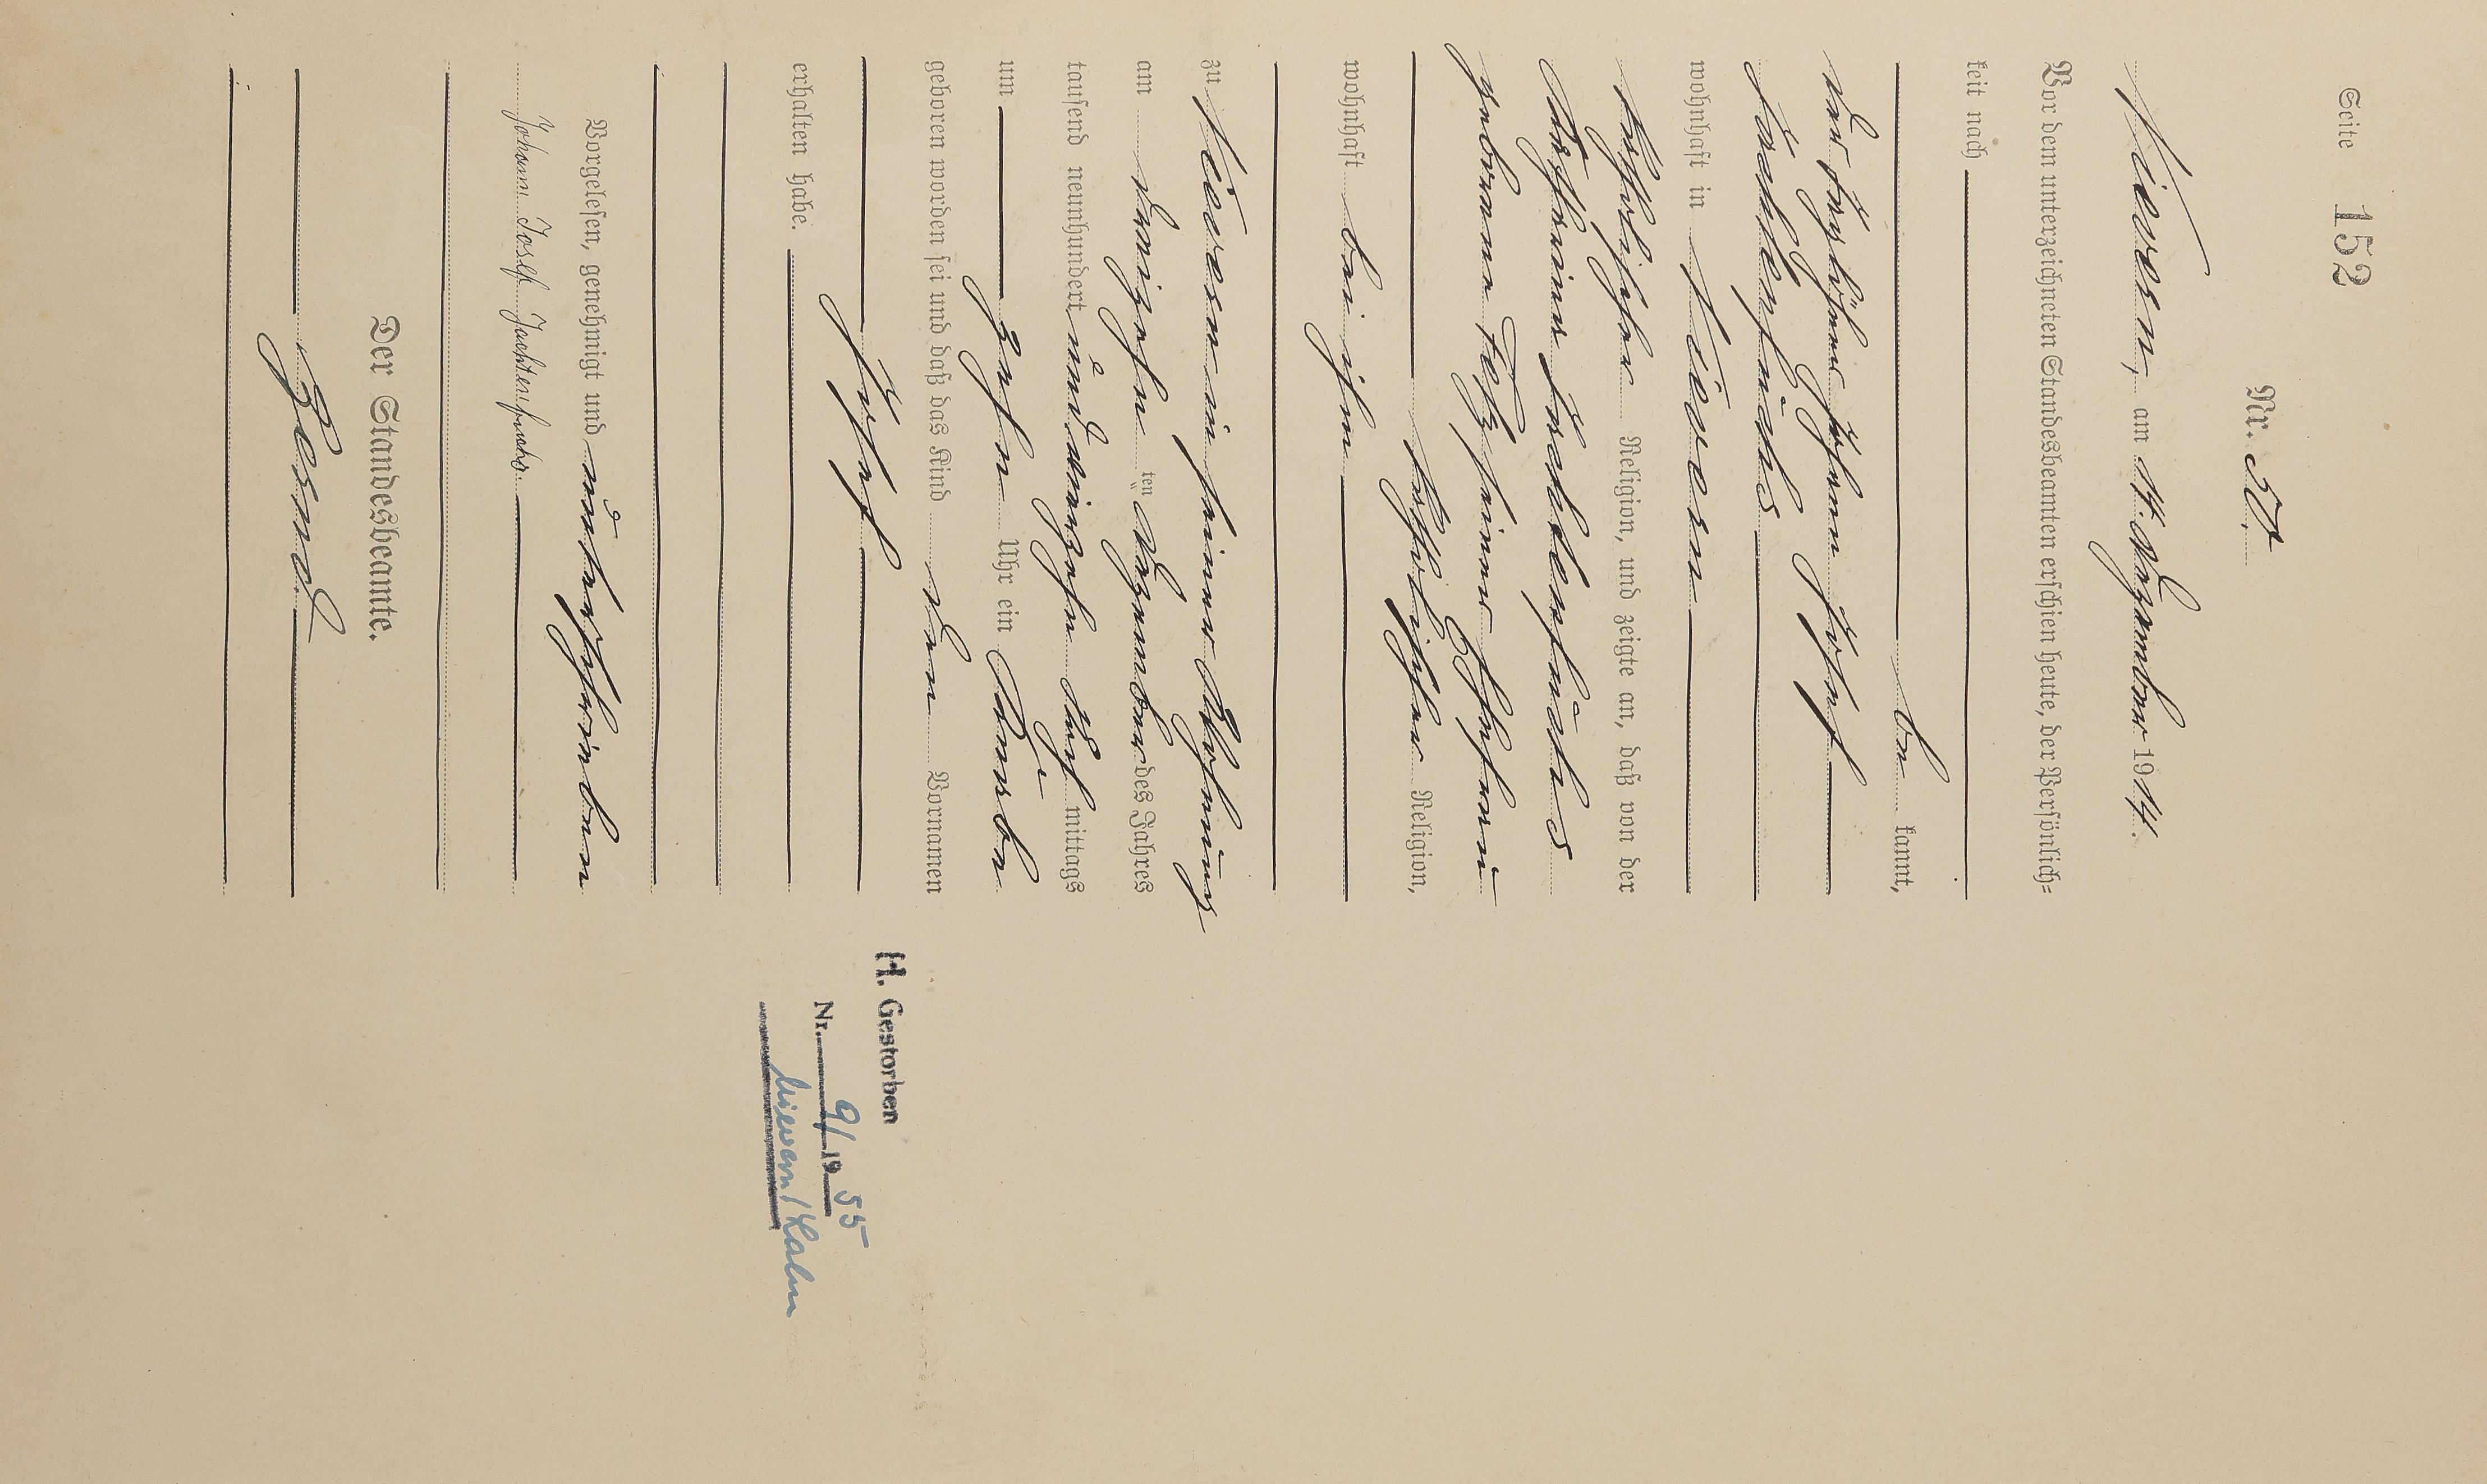 Seite 152
Nr. 51.
Nievern, am 14. Dezember 1914.
Vor dem unterzeichneten Standesbeamten erschien heute, der Persönlich-
keit nach
be kannt,
der Taglöhner Johann Josef
wohnhaft in Nievern
katholischer Religion, und zeigte an, daß von der
geborene seiner Ehefrau
katholischer Religion,
wohnhaft bei ihm
zu Nievern in seiner Wohnung
am dreizehn ten Dezember des Jahres
tausend neunhundert und vierzehn Nach mittags
um zehn Uhr ein Knabe
geboren worden sei und daß das Kind den Vornamen
Josef
erhalten habe.
Vorgelesen, genehmigt und unterschrieben
Johann Josef
Der Standesbeamte.
H. Gestorben
Nr. 9/ 19 55
Nievern/Lahn